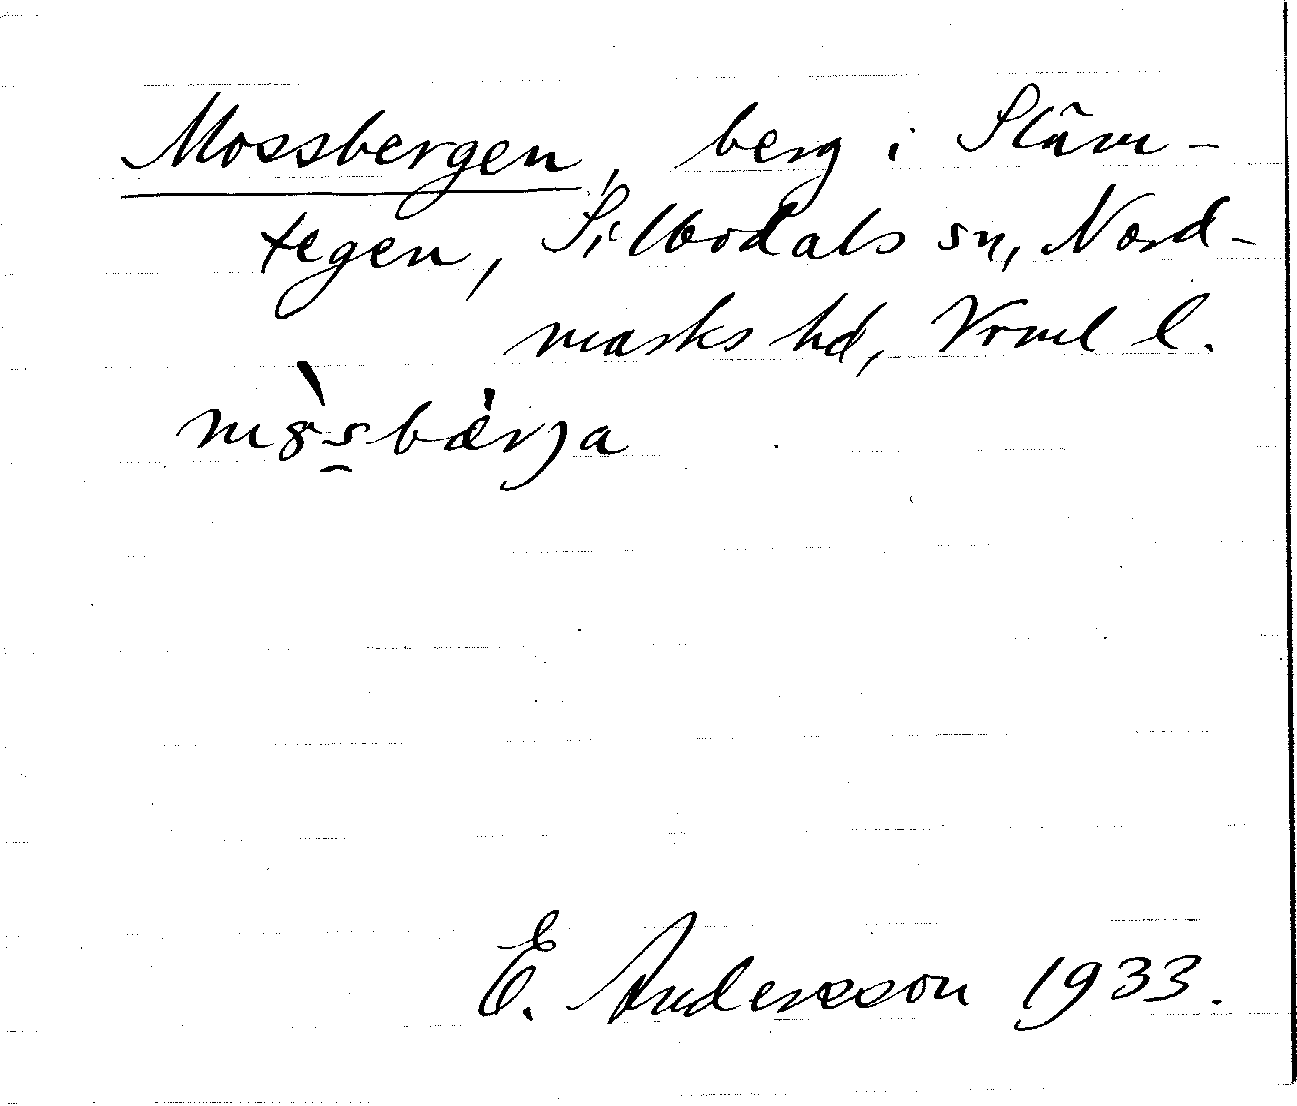 Mossbergen, berg i Släm-
tegen, Silbodals sn, Nord-
marks hd, Vrml l.
mo̊̀s̱bæ̀rja
E. Andersson 1933.